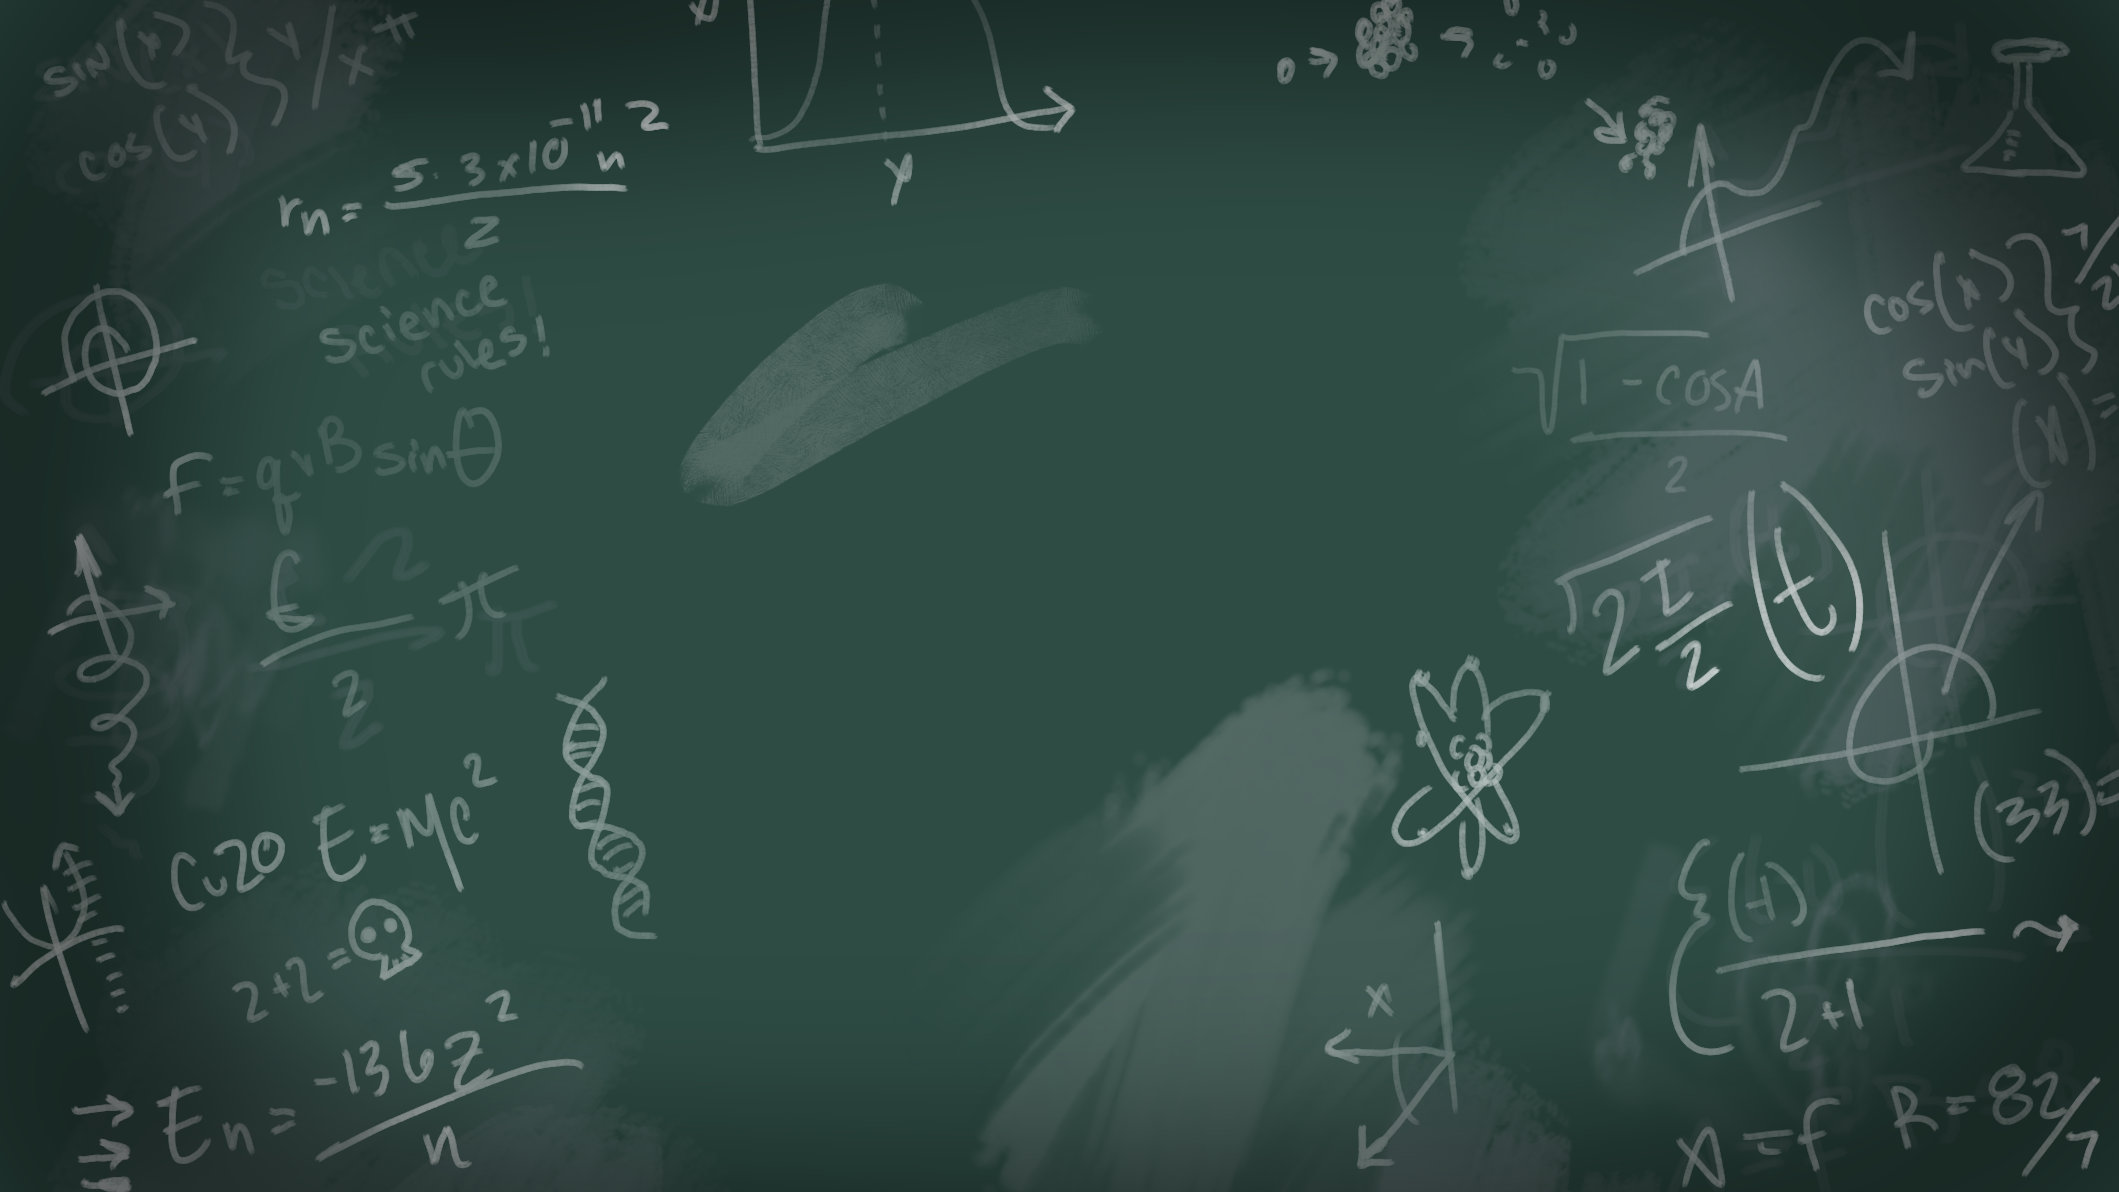 sin(x)} y/x π
cos(y)}
x
y
rn = 5.3x10^-11 n^2
z
science
science
rules!
F=qvBsinθ
π
2
Cu20 E=MC^2
2+2=
En = -136Z^2
n
cos(x)} 7/2
sin(y)}
(x)=
√1-cosA
2
√2 I/2 (t)
(33)=
{(+)
2+1
x
X=f R=82/7